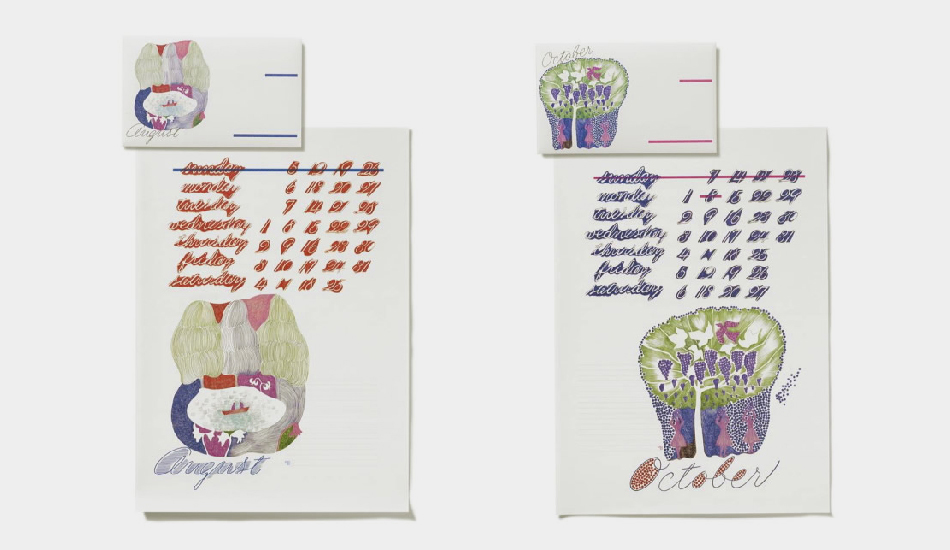 August
sunday 5 12 19 26
monday 6 13 20 27
tuesday 7 14 21 28
wednesday 1 8 15 22 29
thursday 2 9 16 23 30
friday 3 10 17 24 31
saturday 4 11 18 25
August
October
sunday 7 14 21 28
monday 1 8 15 22 29
tuesday 2 9 16 23 30
wednesday 3 10 17 24 31
thursday 4 11 18 25
friday 5 12 19 26
saturday 6 13 20 27
October